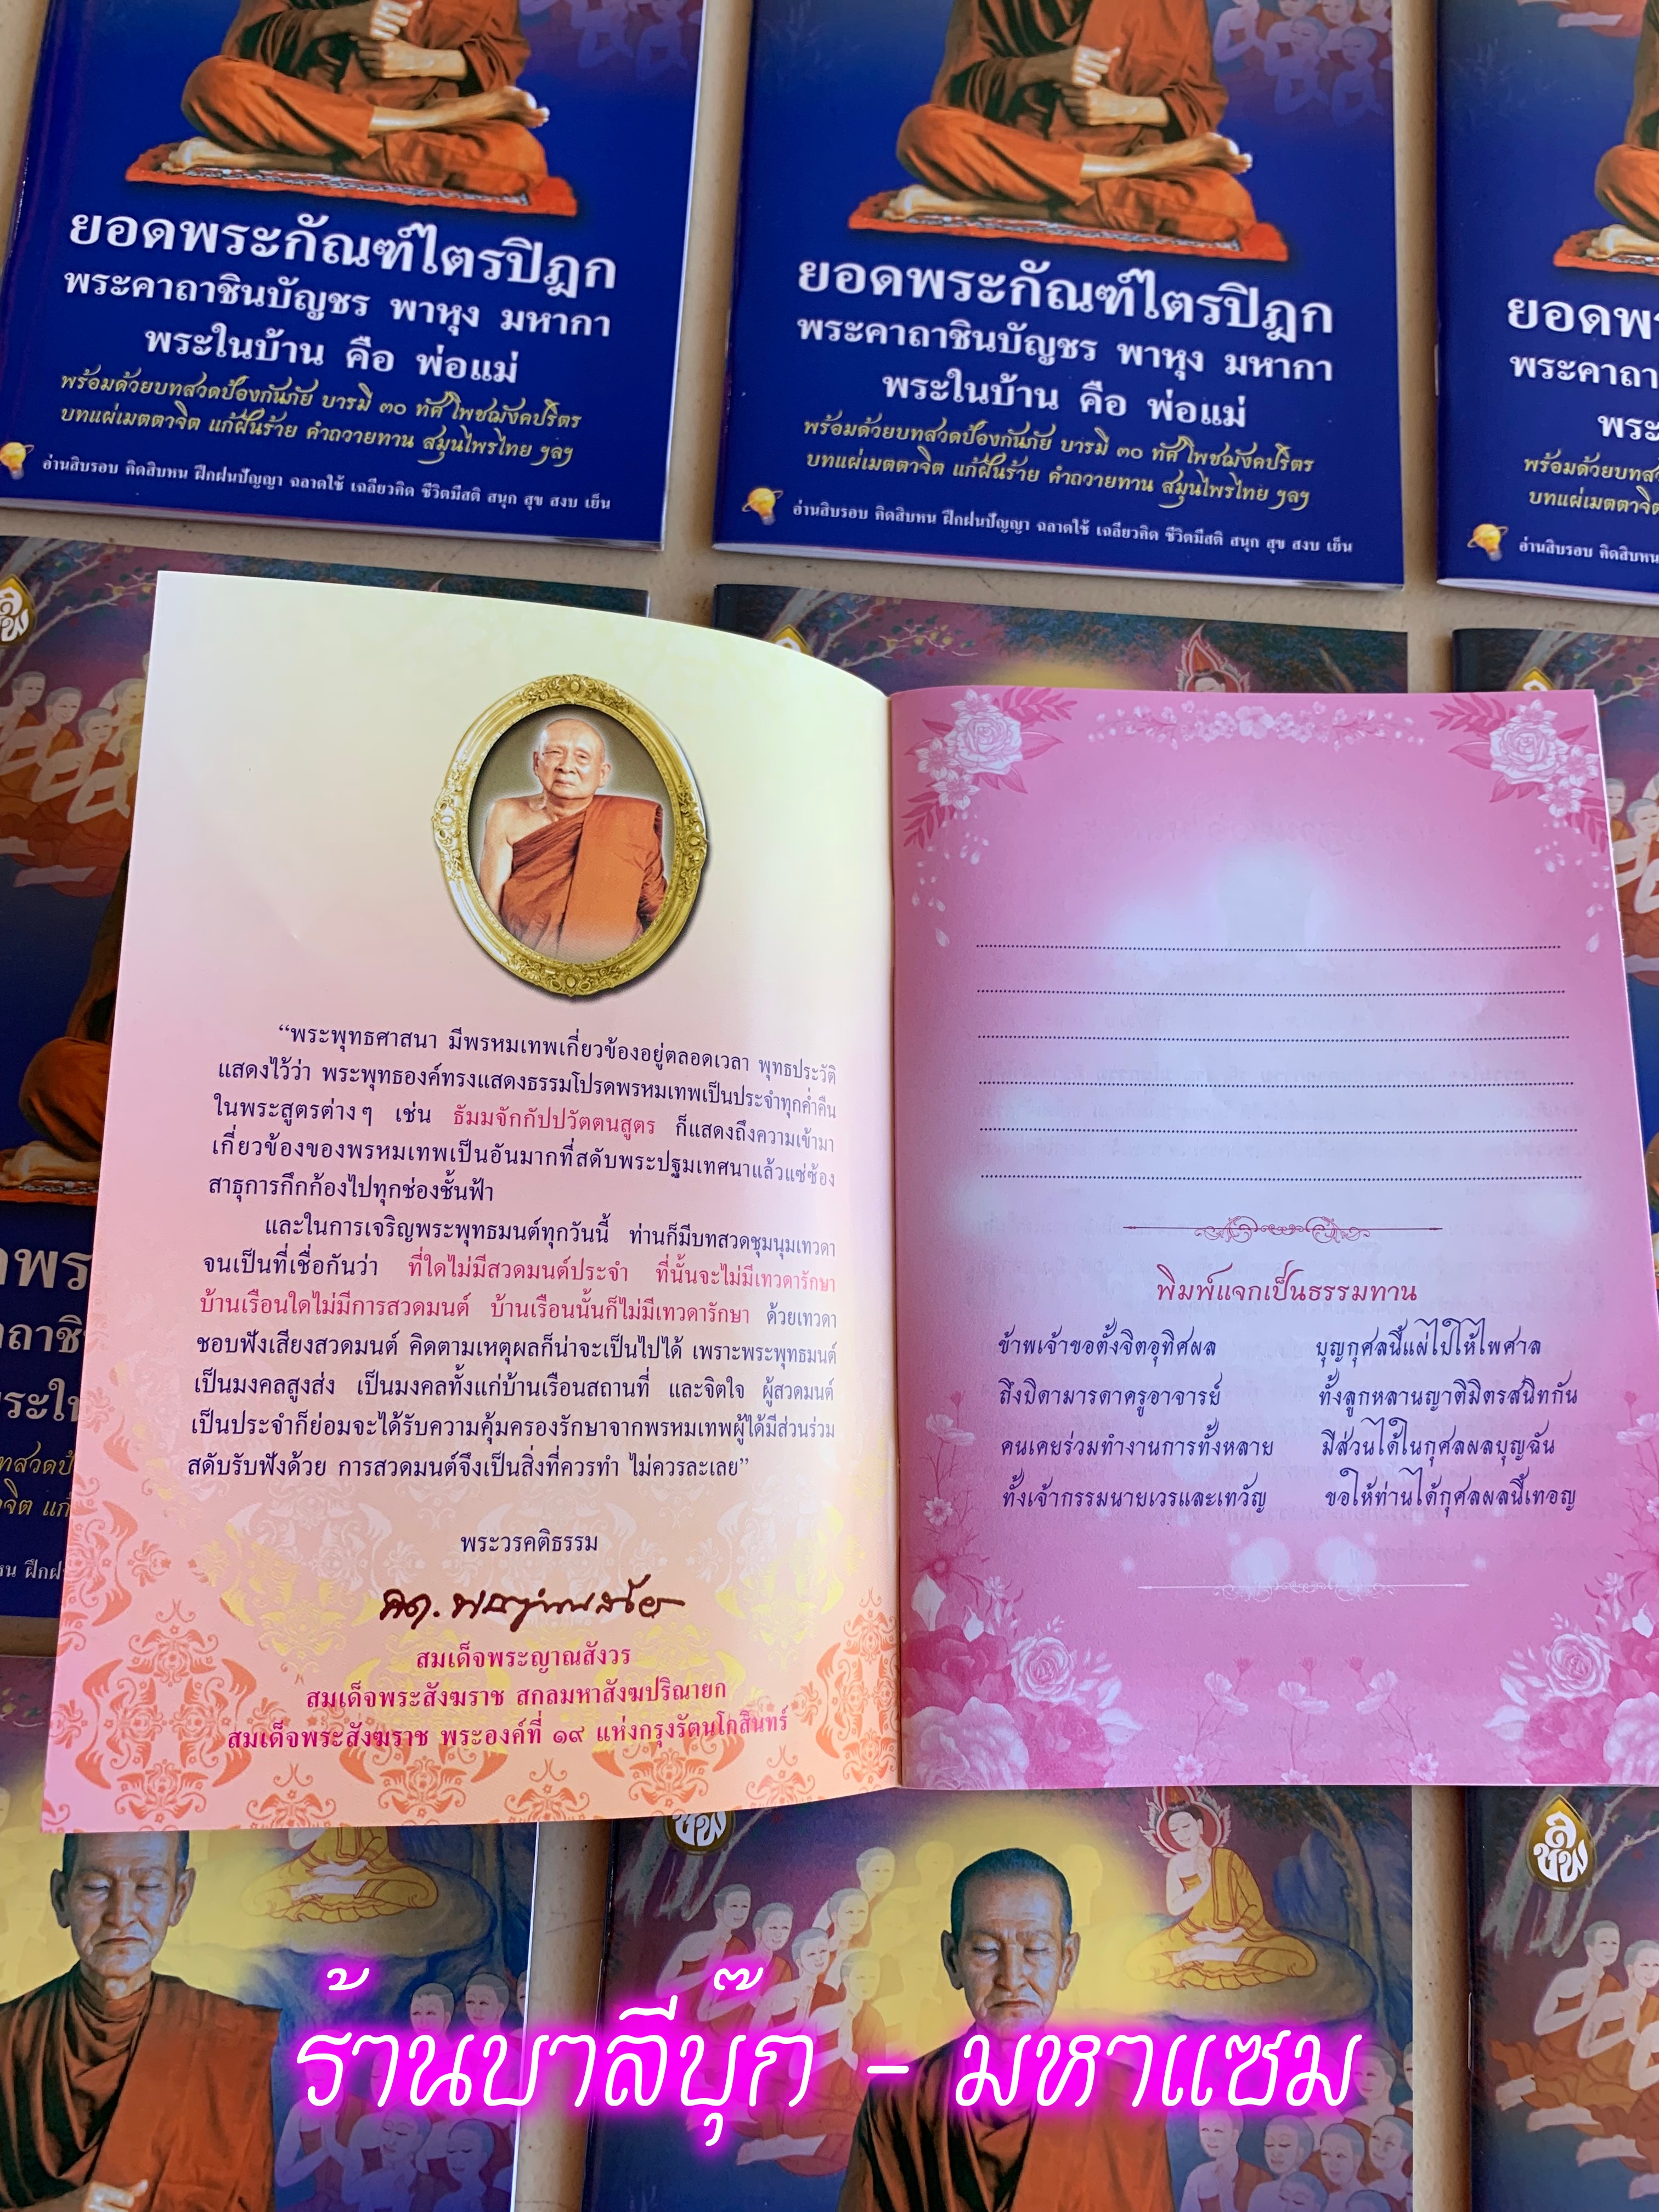 ยอดพระกัณฑ์ไตรปิฎก
พระคาถาชินบัญชร พาหุง มหากา
พระในบ้าน คือ พ่อแม่
พร้อมด้วยบทสวดป้องกันภัย บารมี ๓๐ ทัศ โพชฌังคปริตร
บทแผ่เมตตาจิต แก้ฝันร้าย คำถวายทาน สมุนไพรไทย ฯลฯ
อ่านสิบรอบ คิดสิบหน ฝึกฝนปัญญา ฉลาดใช้ เฉลียวคิด ชีวิตมีสติ สนุก สุข สงบ เย็น
ยอดพระกัณฑ์ไตรปิฎก
พระคาถาชินบัญชร พาหุง มหากา
พระในบ้าน คือ พ่อแม่
พร้อมด้วยบทสวดป้องกันภัย บารมี ๓๐ ทัศ โพชฌังคปริตร
บทแผ่เมตตาจิต แก้ฝันร้าย คำถวายทาน สมุนไพรไทย ฯลฯ
อ่านสิบรอบ คิดสิบหน ฝึกฝนปัญญา ฉลาดใช้ เฉลียวคิด ชีวิตมีสติ สนุก สุข สงบ เย็น
ยอดพร
พระคาถา
พระ
พร้อมด้วยบทสว
บทแผ่เมตตาจิต
อ่านสิบรอบ คิดสิบหน
“พระพุทธศาสนา มีพรหมเทพเกี่ยวข้องอยู่ตลอดเวลา พุทธประวัติ
แสดงไว้ว่า พระพุทธองค์ทรงแสดงธรรมโปรดพรหมเทพเป็นประจำทุกค่ำคืน
ในพระสูตรต่างๆ เช่น ธัมมจักกัปปวัตตนสูตร ก็แสดงถึงความเข้ามา
เกี่ยวข้องของพรหมเทพเป็นอันมากที่สดับพระปฐมเทศนาแล้วแซ่ซ้อง
สาธุการกึกก้องไปทุกช่องชั้นฟ้า
และในการเจริญพระพุทธมนต์ทุกวันนี้ ท่านก็มีบทสวดชุมนุมเทวดา
จนเป็นที่เชื่อกันว่า ที่ใดไม่มีสวดมนต์ประจำ ที่นั้นจะไม่มีเทวดารักษา
บ้านเรือนใดไม่มีการสวดมนต์ บ้านเรือนนั้นก็ไม่มีเทวดารักษา ด้วยเทวดา
ชอบฟังเสียงสวดมนต์ คิดตามเหตุผลก็น่าจะเป็นไปได้ เพราะพระพุทธมนต์
เป็นมงคลสูงส่ง เป็นมงคลทั้งแก่บ้านเรือนสถานที่ และจิตใจ ผู้สวดมนต์
เป็นประจำก็ย่อมจะได้รับความคุ้มครองรักษาจากพรหมเทพผู้ได้มีส่วนร่วม
สดับรับฟังด้วย การสวดมนต์จึงเป็นสิ่งที่ควรทำ ไม่ควรละเลย”
พระวรคติธรรม
สมเด็จพระญาณสังวร
สมเด็จพระสังฆราช สกลมหาสังฆปริณายก
สมเด็จพระสังฆราช พระองค์ที่ ๑๙ แห่งกรุงรัตนโกสินทร์
พิมพ์แจกเป็นธรรมทาน
ข้าพเจ้าขอตั้งจิตอุทิศผล บุญกุศลนี้แผ่ไปให้ไพศาล
ถึงบิดามารดาครูอาจารย์ ทั้งลูกหลานญาติมิตรสนิทกัน
คนเคยร่วมทำงานการทั้งหลาย มีส่วนได้ในกุศลผลบุญฉัน
ทั้งเจ้ากรรมนายเวรและเทวัญ ขอให้ท่านได้กุศลผลนี้เทอญ
ร้านบาลีบุ๊ก - มหาแซม